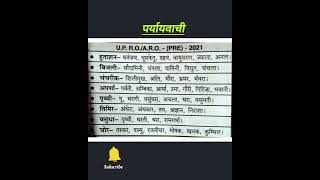 पर्यायवाची
U.P. R.O./A.R.O. - (PRE) - 2021
• हुताशन- धनंजय, धूमकेतु, दहन, वायुसखा, ज्वाला, अनल।
• बिजली- सौदामिनी, चंचला, दामिनी, विद्युत, चपला।
• चंचरीक- शिलीमुख, अलि, भौंरा, भ्रमर, भँवरा।
• अपर्णा- पार्वती, अम्बिका, आर्या, उमा, गौरी, गिरिजा, भवानी।
• पृथ्वी- भू, धरणी, वसुंधरा, अचला, धरा, वसुमती।
• तिमिर- अंधेरा, अंधकार, तम, अज्ञान, निराशा।
• वसुधा- पृथ्वी, धरती, धरा, रत्नगर्भा।
• चोर- तस्कर, दस्यु, रजनीचर, मोषक, खनक, कुम्भिल।
Subscribe